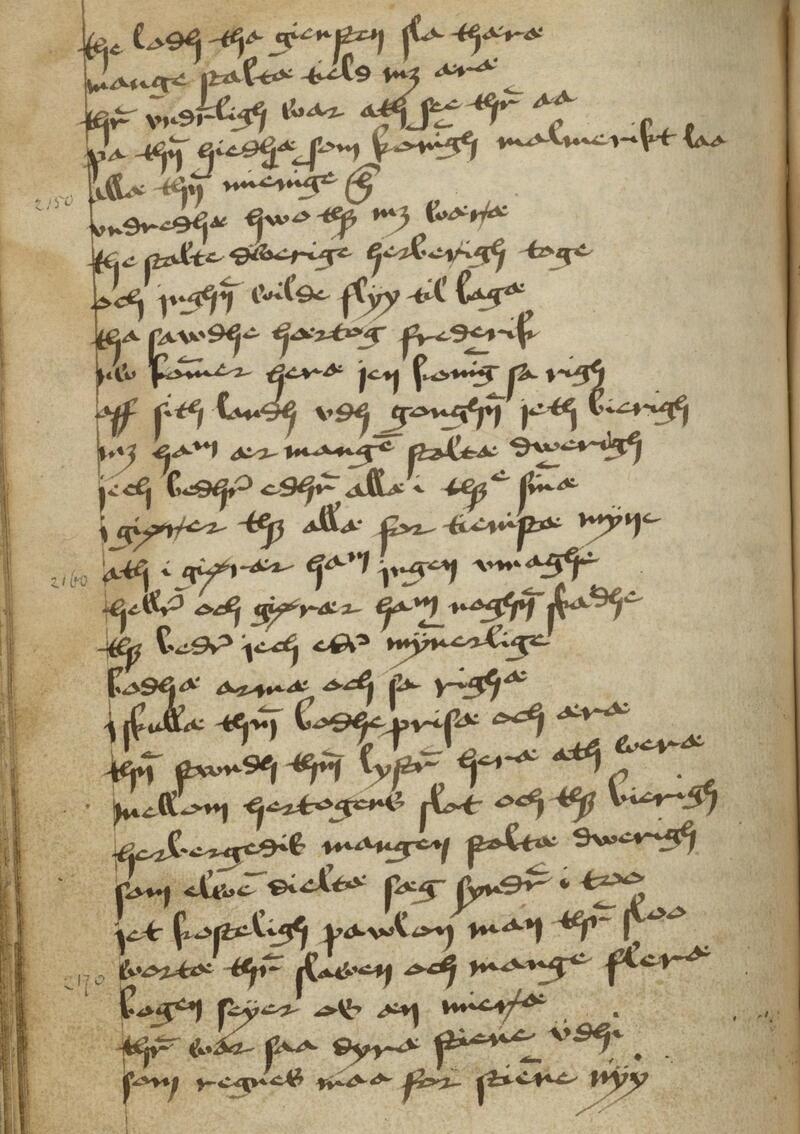 the lodh tha giensten sla thæræ
mange staltæ tield mz æræ
thr̄ vndr̄ligh war ath see thr̄ aa
pa thn̄ hiedhæ som konīgh malmerikt laa
2150 allæ thn̄ mienīge
vndredhæ hwo thz mz wæræ
the stalte dwerige herberigh toge
och inghn̄ wilde flyy til bagæ
tha sawdhe hærtog frederik
nw kom̄er heræ jen konīg sa righ
aff sith landh vdh gonghn̄ jeth bierigh
mz ham ær mangē staltæ dwerigh
jech bedhr̄ edhr̄ allæ i thz sin̄æ
i giører thz allæ for tienistæ myne
2160 ath i giøræer ham ingen vmaghe
hellr̄ och giørær ham noghn̄ skadhe
thz bedr̄ jech edr̄ myn̄erlige
bodhæ armæ och sa righæ
i skullæ thm̄ bodhe prisæ och æræ
thn̄ stwndh thm̄ lystr̄ heræ ath weræ
mellom hertogens slot och thz bierigh
herbergedis mangen staltæ dwerigh
som elwē dieltæ sæg syndr̄ i too
jet kosteligh pawlon man thr̄ sloo
2170 wortæ thr̄ slawen och mange fleræ
bogen seyer os æn mieræ
thr̄ war saa dyræ stiene vdhi
som regnes maa for stiēne nyy